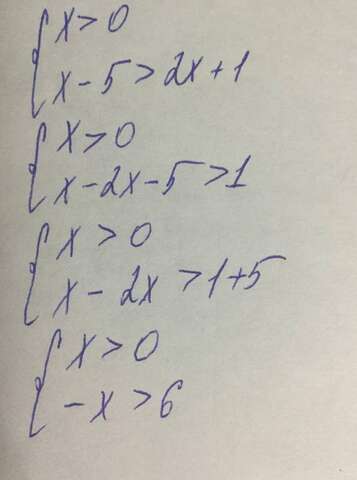 { x > 0
x - 5 > 2x + 1
{ x > 0
x - 2x - 5 > 1
{ x > 0
x - 2x > 1 + 5
{ x > 0
- x > 6